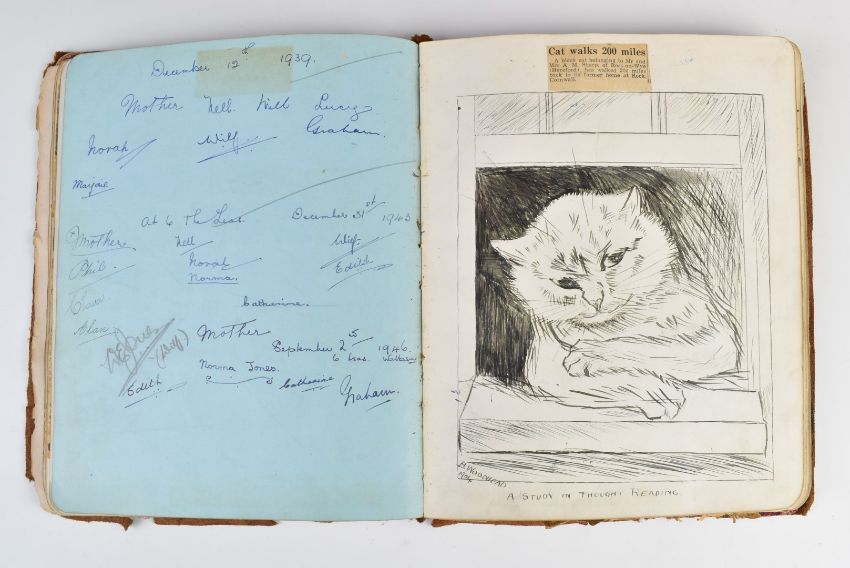 December 12th 1939.
Mother Nell. Will Lucy
Graham.
Norah Wilf.
Marjorie
At 6 The Leas. December 31st 1943
Mother. Nell Wilf.
Phil. Norah Edith
Norma.
Catherine.
Alan
Mother
September 25 1946.
6 Leas. Wallasey
Edith Norma Jones. Catherine Graham.
Cat walks 200 miles
A black cat belonging to Mr and
Mrs A. M. Sharp, of Ross-on-Wye
(Hereford), has walked 200 miles
back to its former home at Rock,
Cornwall.
B. WOODHEAD
1904
A STUDY IN THOUGHT READING.